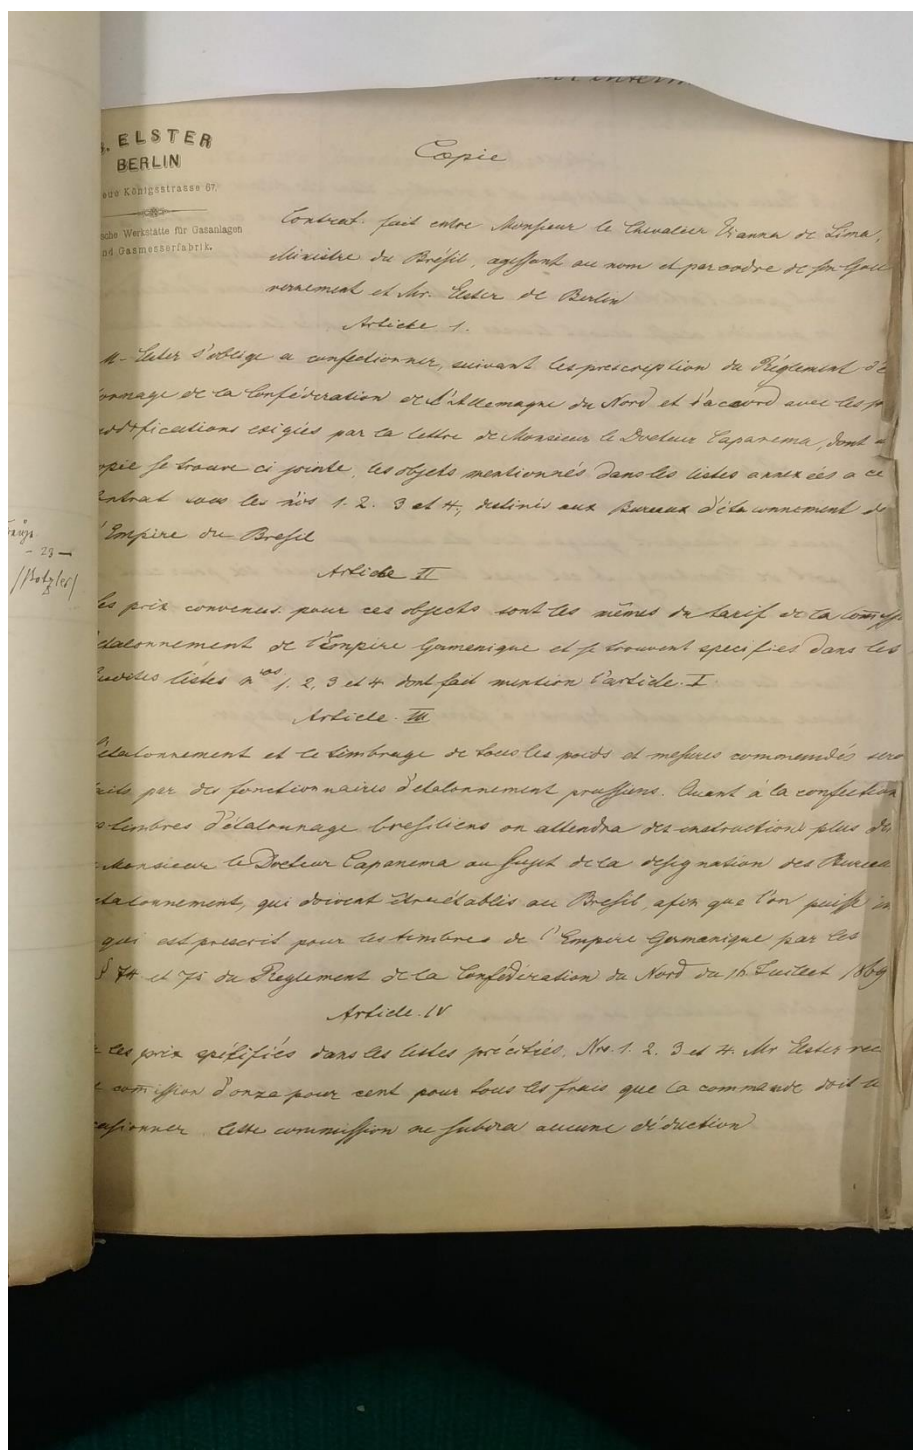 S. ELSTER
BERLIN
eue Königsstrasse 67.
ische Werkstätte für Gasanlagen
nd Gasmesserfabrik.
Copie
Contrat fait entre Monsieur le Chevalier Vianna de Lima,
Ministre du Brésil, agissant au nom et par ordre de son Gou
vernement et Mr. Elster de Berlin
Article 1.
M. Elster s'oblige a confectionner, suivant les prescription du Réglement d'é
onnage de la Conféderation de l'Allemagne du Nord et d'accord avec les
modifications exigées par la lettre de Monsieur le Docteur Capanema, dont
opie se trouve ci jointe, les objets mentionnés dans les listes annexées a ce
ontrat sous les nos 1. 2. 3 et 4, destinés aux Bureaux d'étalonnement de
l'Empire du Bresil
- 29 -
Article II
Les prix convenus pour ces objects sont les mêmes du tarif de la
étalonnement de l'Empire Germanique et se trouvent specifies dans les
susdites listes nos 1. 2, 3 et 4 dont fait mention l'article I
Article III
L'étalonnement et le timbrage de tous les poids et mesures commandés sero
faits par des fonctionnaires d'etalonnement prussiens. Quant à la confection
es timbres d'étalonnage bresiliens on attendra des instructions plus
Monsieur le Docteur Capanema au sujet de la designation des Bureau
etalonnement, qui doivent être établis au Bresil, afin que l'on puisse
qui est prescrit pour les timbres de l'Empire Germanique par les
§ 74 et 75 du Reglement de la Conféderation du Nord du 16 Juillet 1869
Article IV
les prix spécifiés dans les listes précitées, Nrs. 1. 2. 3 et 4. Mr Elster rec
commission d'onze pour cent pour tous les frais que la commande doit
casionner. Cette commission ne subira aucune déduction